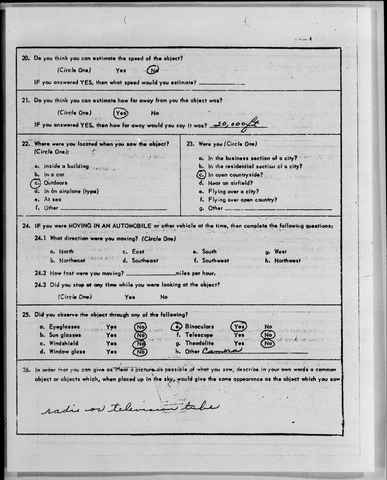 4
20. Do you think you can estimate the speed of the object?
(Circle One) Yes No
IF you answered YES, then what speed would you estimate?
21. Do you think you can estimate how far away from you the object was?
(Circle One) Yes No
IF you answered YES, then how far away would you say it was? 20,000 ft
22. Where were you located when you saw the object?
(Circle One):
a. Inside a building
b. In a car
c. Outdoors
d. In an airplane (type)
e. At sea
f. Other
23. Were you (Circle One)
a. In the business section of a city?
b. In the residential section of a city?
c. In open countryside?
d. Near an airfield?
e. Flying over a city?
f. Flying over open country?
g. Other
24. IF you were MOVING IN AN AUTOMOBILE or other vehicle at the time, then complete the following questions:
24.1 What direction were you moving? (Circle One)
a. North c. East e. South g. West
b. Northeast d. Southeast f. Southwest h. Northwest
24.2 How fast were you moving? miles per hour.
24.3 Did you stop at any time while you were looking at the object?
(Circle One) Yes No
25. Did you observe the object through any of the following?
a. Eyeglasses Yes No e. Binoculars Yes No
b. Sun glasses Yes No f. Telescope Yes No
c. Windshield Yes No g. Theodolite Yes No
d. Window glass Yes No h. Other Camera
26. In order that you can give as clear a picture as possible of what you saw, describe in your own words a common
object or objects which, when placed up in the sky, would give the same appearance as the object which you saw.
radio or television tube